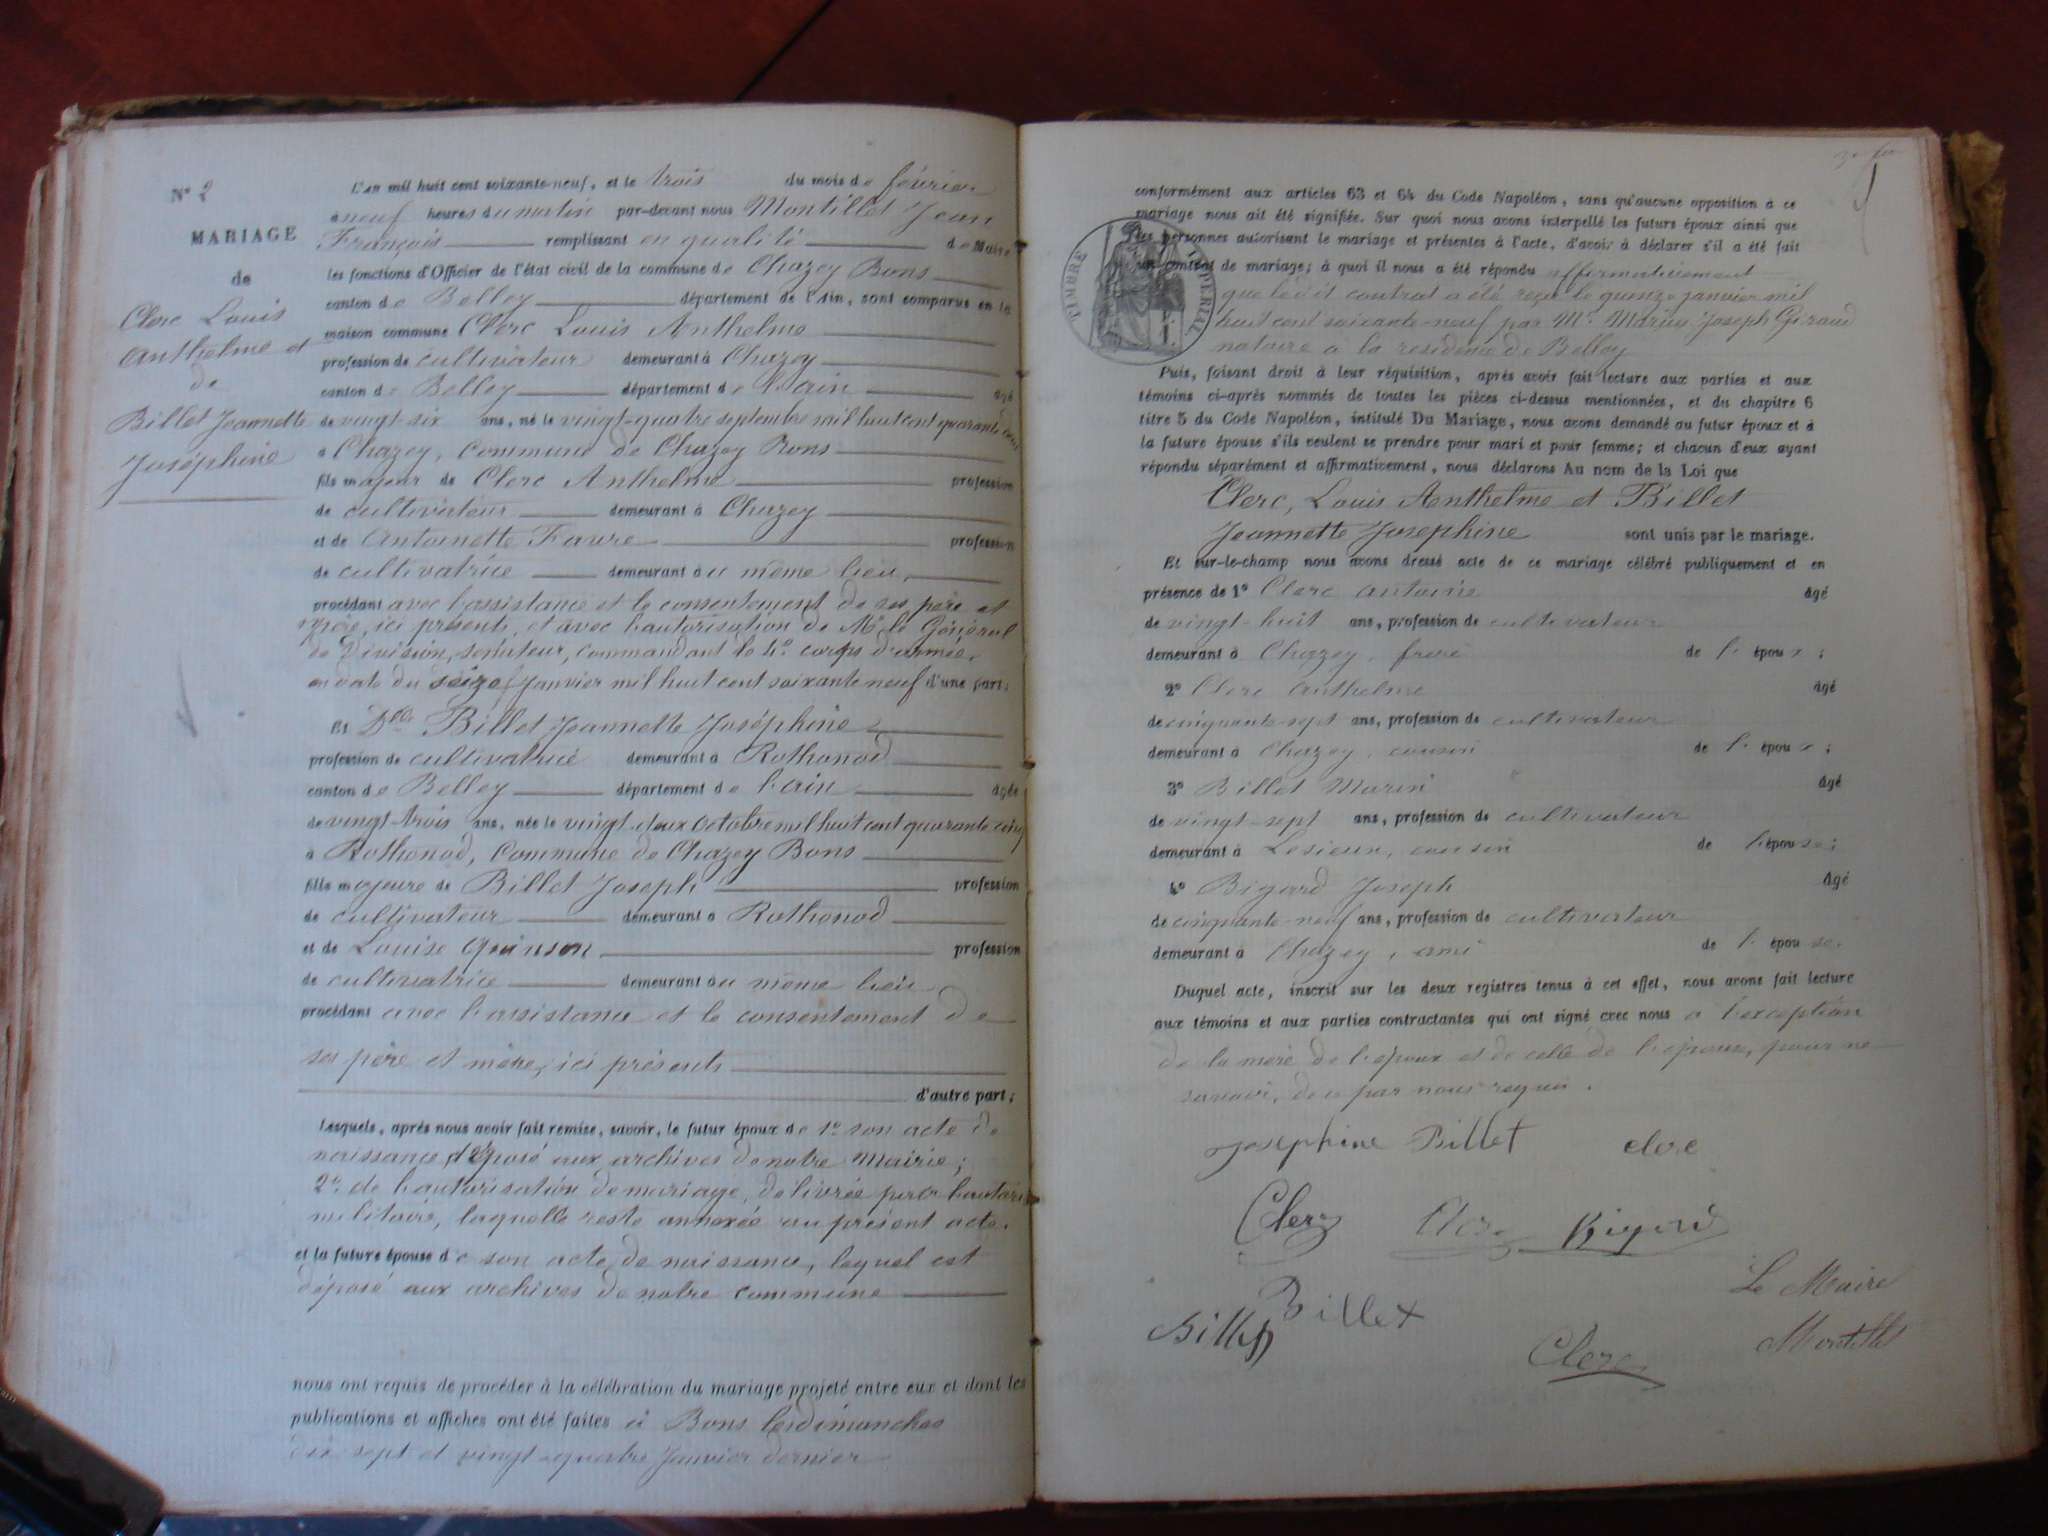 N° 2
MARIAGE
de
Clerc Louis
Anthelme et
de
Billet Jeannette
Joséphine
L'an mil huit cent soixante-neuf, et le trois du mois de février
à neuf heures du matin par-devant nous Montillet Jean
François remplissant en qualité de Maire
les fonctions d'Officier de l'état civil de la commune de Chazey Bons
canton de Belley département de l'Ain, sont comparus en la
maison commune Clerc Louis Anthelme
profession de cultivateur demeurant à Chazey
canton de Belley département de l'ain âgé
de vingt-six ans, né le vingt-quatre septembre mil huit cent quarante deux
à Chazey, commune de Chazey Bons
fils majeur de Clerc Anthelme profession
de cultivateur demeurant à Chazey
et de Antoinette Favre profession
de cultivatrice demeurant au même lieu,
procédant avec l'assistance et le consentement de ses père et
mère, ici présents, et avec l'autorisation de Mr le Général
de Division, senateur, commandant le 4e corps d'armée,
en date du seize Janvier mil huit cent soixante neuf d'une part;
Et Dlle Billet Jeannette Joséphine
profession de cultivatrice demeurant à Rothonod
canton de Belley département de l'ain âgée
de vingt-trois ans, née le vingt-deux Octobre mil huit cent quarante cinq
à Rothonod, Commune de Chazey Bons
fille majeure de Billet Joseph profession
de cultivateur demeurant à Rothonod
et de Louise Quinson profession
de cultivatrice demeurant au même lieu
procédant avec l'assistance et le consentement de
ses père et mère, ici présents
d'autre part;
Lesquels, après nous avoir fait remise, savoir, le futur époux de 1° son acte de
naissance, déposé aux archives de notre Mairie;
2° de l'autorisation de mariage, delivrée par l'autorité
militaire, laquelle reste annexée au présent acte.
et la future épouse de son acte de naissance, lequel est
déposé aux archives de notre commune
nous ont requis de procéder à la célébration du mariage projeté entre eux et dont les
publications et affiches ont été faites à Bons les dimanches
dix sept et vingt-quatre Janvier dernier
conformément aux articles 63 et 64 du Code Napoléon, sans qu'aucune opposition à ce
mariage nous ait été signifiée. Sur quoi nous avons interpellé les futurs époux ainsi que
les personnes autorisant le mariage et présentes à l'acte, d'avoir à déclarer s'il a été fait
un contrat de mariage; à quoi il nous a été répondu affirmativement
que le dit contrat a été reçu le quinze janvier mil
huit cent soixante-neuf par Me Marius Joseph Giraud
notaire à la residence de Belley
TIMBRE IMPERIAL
Puis, faisant droit à leur réquisition, après avoir fait lecture aux parties et aux
témoins ci-après nommés de toutes les pièces ci-dessus mentionnées, et du chapitre 6
titre 5 du Code Napoléon, intitulé Du Mariage, nous avons demandé au futur époux et à
la future épouse s'ils veulent se prendre pour mari et pour femme; et chacun d'eux ayant
répondu séparément et affirmativement, nous déclarons Au nom de la Loi que
Clerc, Louis Anthelme et Billet
Jeannette Josephine sont unis par le mariage.
Et sur-le-champ nous avons dressé acte de ce mariage célébré publiquement et en
présence de 1° Clerc Antoine âgé
de vingt-huit ans, profession de cultivateur
demeurant à Chazey, frere de l'époux;
2° Clerc Anthelme âgé
de cinquante-sept ans, profession de cultivateur
demeurant à Chazey, cousin de l'époux;
3° Billet Marin âgé
de vingt-sept ans, profession de cultivateur
demeurant à Lesieux, cousin de l'épouse;
4° Bigard Joseph âgé
de cinquante-neuf ans, profession de cultivateur
demeurant à Chazey, ami de l'épouse.
Duquel acte, inscrit sur les deux registres tenus à cet effet, nous avons fait lecture
aux témoins et aux parties contractantes qui ont signé avec nous à l'exception
de la mere de l'epoux et de celle de l'épouse, pour ne
savoir, de ce par nous requis.
Josephine Billet clerc
Clerc Clerc Bigard
Billet
Billet
Clerc
Le Maire
Montillet